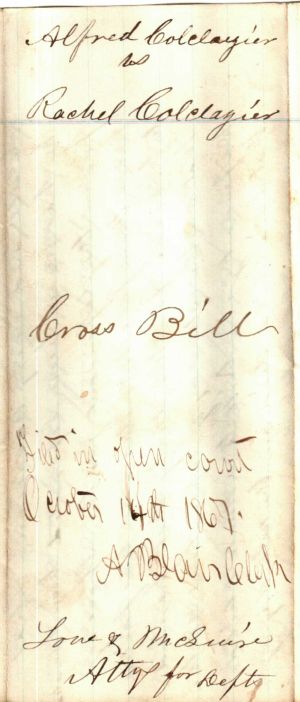 Alfred Colclazier
vs
Rachel Colclazier
Cross Bill
Filed in open court
October 14th 1867.
A Blair Clk
Love & McGuire
Attys for Defts